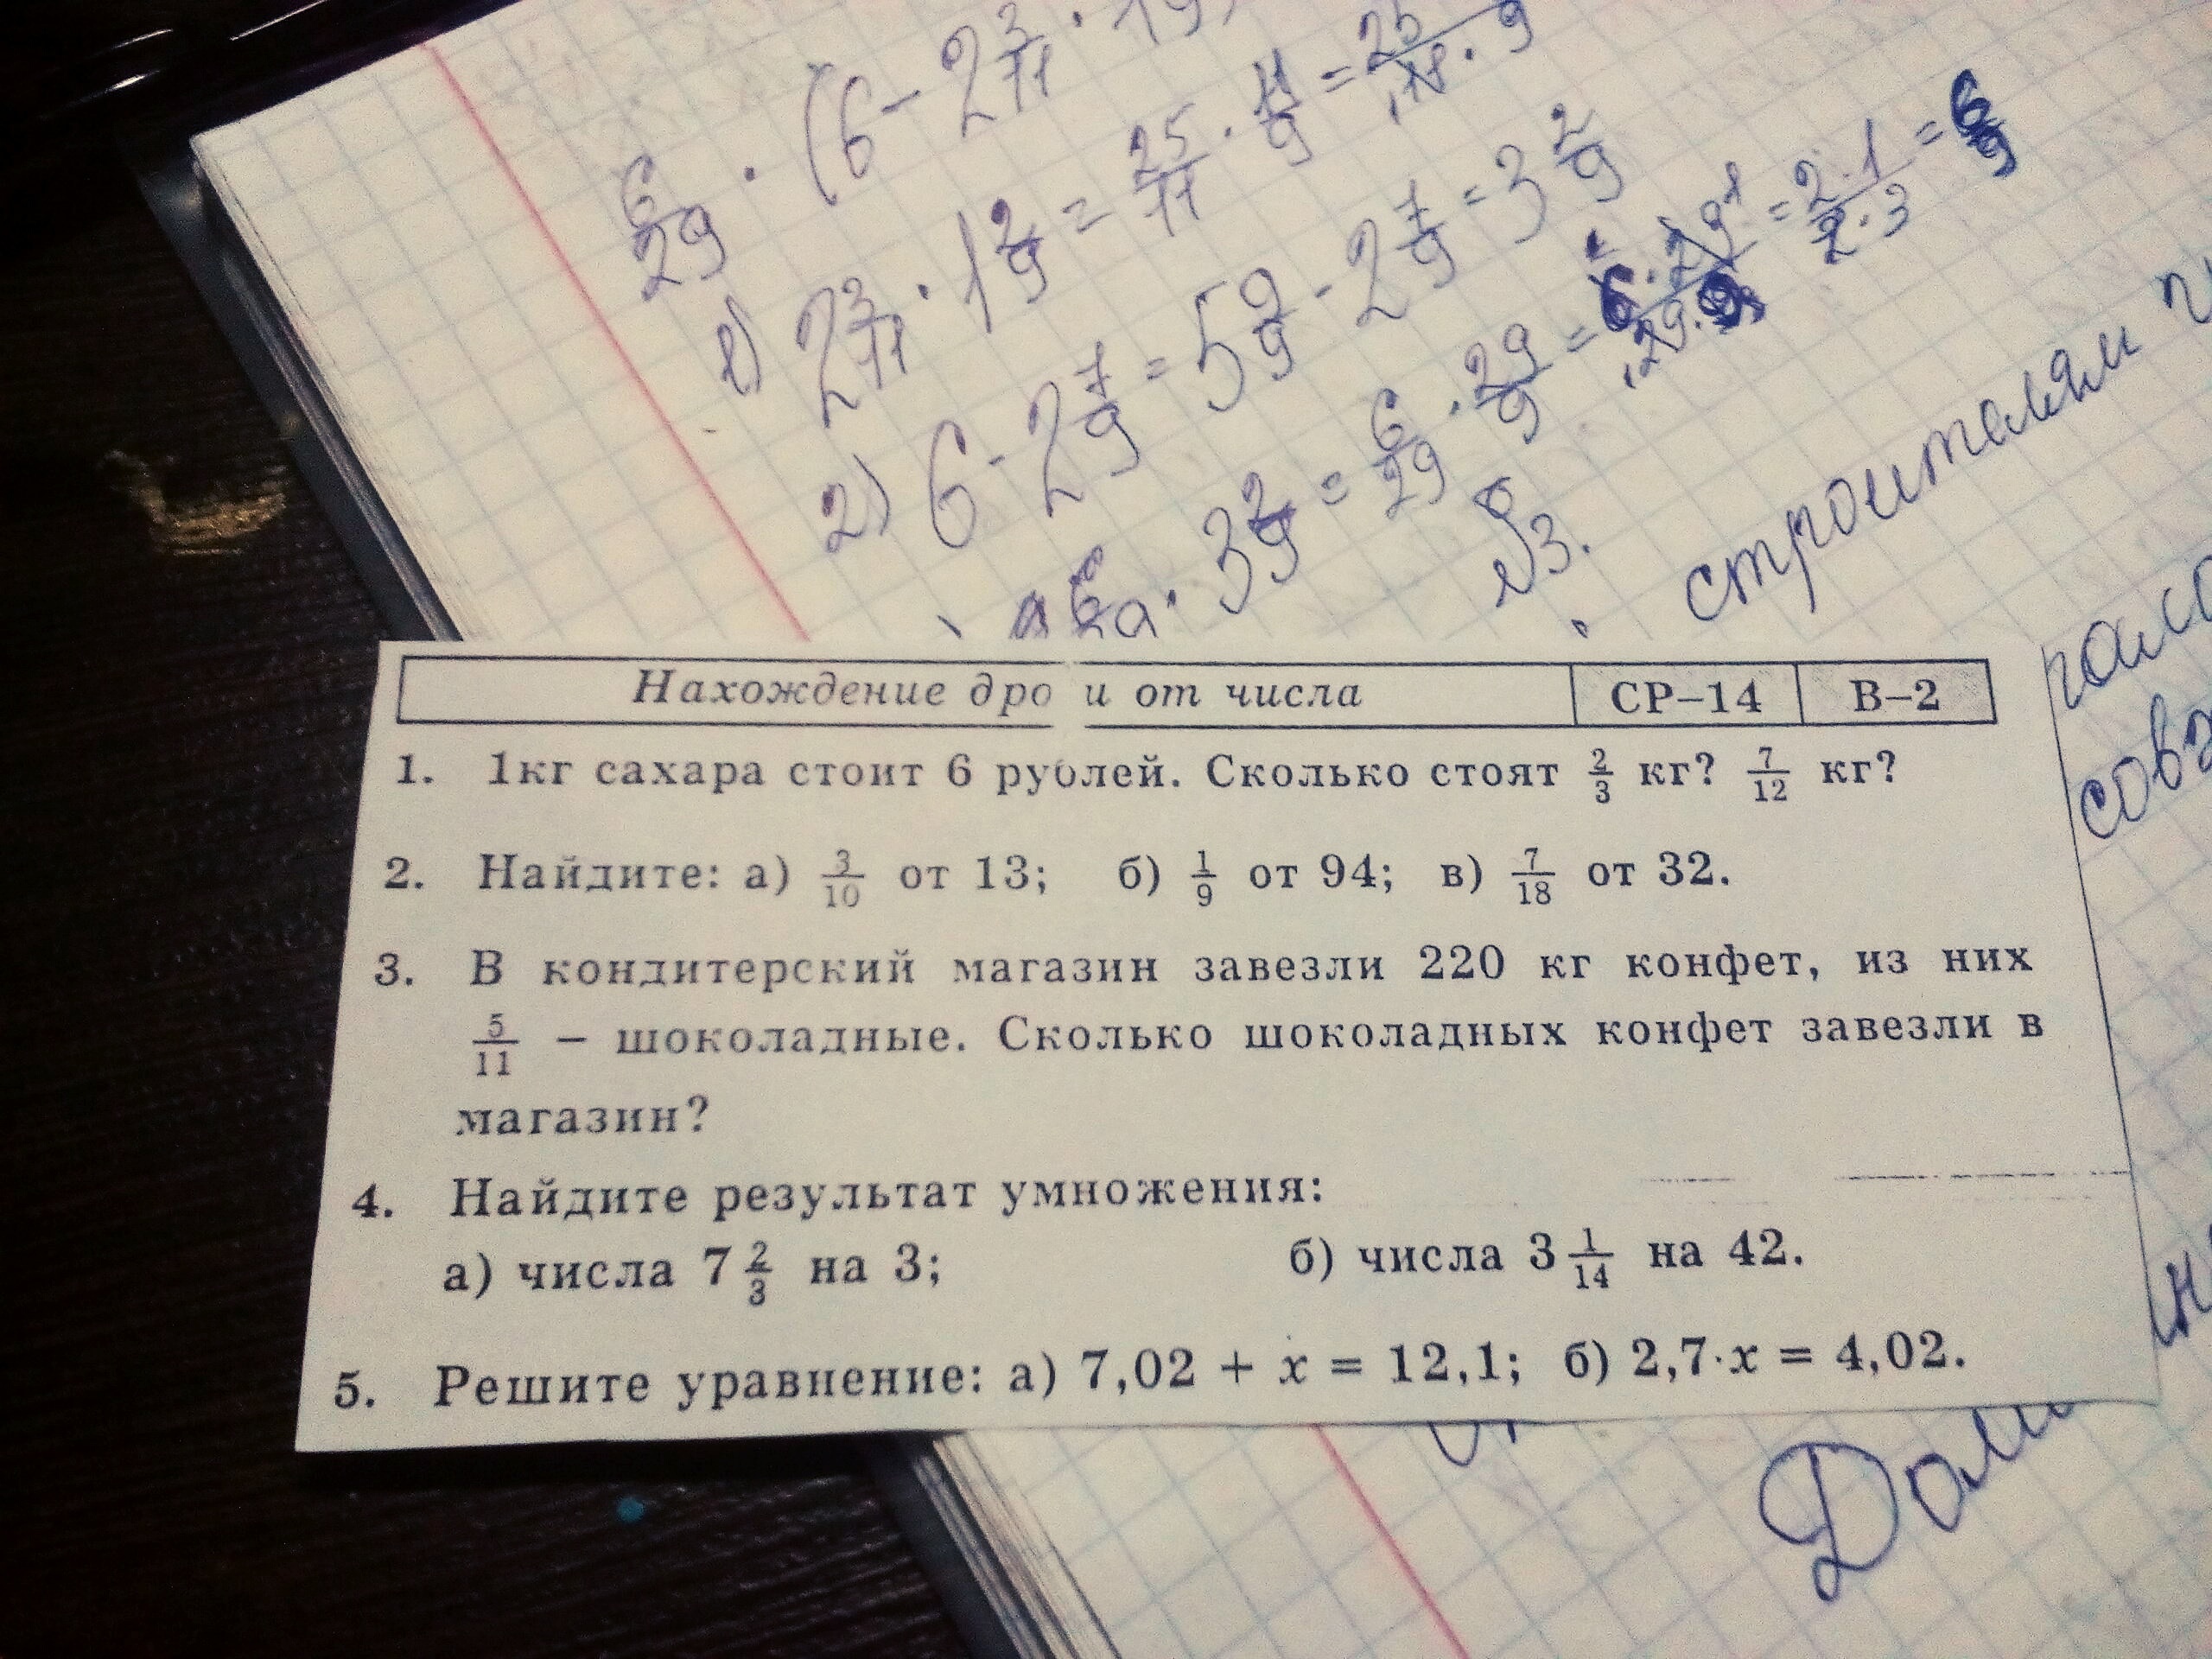 6/29 · (6 - 2 3/11 ·
1) 2 3/11 · 1 2/9 = 25/11 · 11/9 = 25/11 · 9
2) 6 - 2 7/9 = 5 9/9 - 2 7/9 = 3 2/9
· 3 2/9 = 6/29 · 29/9 = = 2·1/2·3 =
строителям
Нахождение дро и от числа СР–14 В–2
1. 1кг сахара стоит 6 рублей. Сколько стоят 2/3 кг? 7/12 кг?
2. Найдите: а) 3/10 от 13; б) 1/9 от 94; в) 7/18 от 32.
3. В кондитерский магазин завезли 220 кг конфет, из них
5/11 – шоколадные. Сколько шоколадных конфет завезли в
магазин?
4. Найдите результат умножения:
а) числа 7 2/3 на 3; б) числа 3 1/14 на 42.
5. Решите уравнение: а) 7,02 + x = 12,1; б) 2,7·x = 4,02.